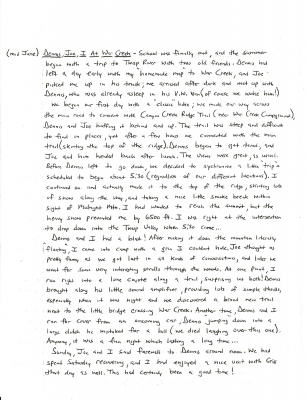 (mid June) Denny, Joe, I At War Creek - School was finally out, and the summer
began with a trip to Twisp River with two old friends. Denny had
left a day early with my "homemade map" to War Creek, and Joe
picked me up in his truck; we arrived after dark and met up with
Denny, who was already asleep in his V.W. Van (of course we woke him!)
We began our first day with a "classic" hike; we made our way across
the main road to connect with Canyon Creek Ridge Trail (near War Creek Campground),
Denny and Joe huffing it behind and up. The trail was steep and difficult
to find in places, yet after a few hours we connected with the main
trail (skirting the top of the ridge). Denny began to get tired, and
Joe and him headed back after lunch. The views were great, as usual.
Before Denny left to go down we decided to synchronize a
scheduled to begin about 5:30 (regardless of our different locations). I
continued on and actually made it to the top of the ridge, skirting lots
of snow along the way, and taking a nice little smoke break within
sight of Midnight Mtn. I had wanted to reach the summit but the
heavy snow prevented me by 6500 ft. I was right at the intersection
to drop down into the Twisp Valley when 5:30 came...
Denny and I had a blast! After making it down the mountain literally
floating, I came into camp with a grin I couldn't hide. Joe thought it
pretty funny as we got lost in all kinds of conversations, and later we
went for some very interesting strolls through the woods. At one point, I
ran right into a lone coyote along a trail, surprising us both! Denny
brought along his little sound amplifier, providing lots of simple thrills,
especially when it was night and we discovered a brand new trail
next to the little bridge crossing War Creek. Another time, Denny and I
ran for cover from an oncoming car, Denny jumping down into a
large ditch he mistook for a hill (we died laughing over this one).
Anyway, it was a fun night which lasting a long time...
Sunday, Joe and I said farewell to Denny around noon. We had
spent Saturday recovering, and I had enjoyed a nice visit with Eric
that day as well. This had certainly been a good time!